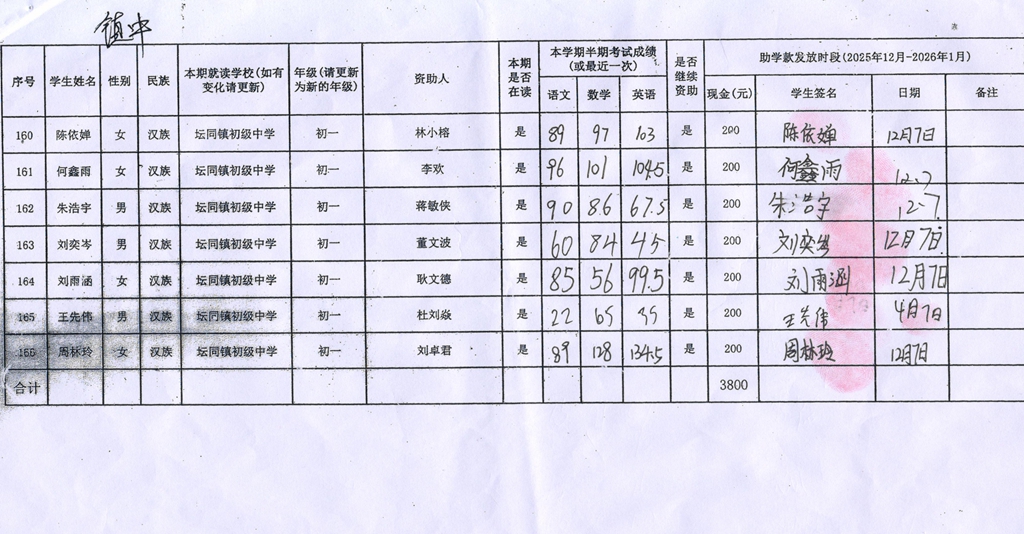 镇中
序号 学生姓名 性别 民族 本期就读学校(如有变化请更新) 年级(请更新为新的年级) 资助人 本期是否在读 本学期半期考试成绩(或最近一次) 是否继续资助 助学款发放时段(2025年12月-2026年1月)
语文 数学 英语 现金(元) 学生签名 日期 备注
160 陈依婵 女 汉族 坛同镇初级中学 初一 林小榕 是 89 97 103 是 200 陈依婵 12月7日
161 何鑫雨 女 汉族 坛同镇初级中学 初一 李欢 是 96 101 104.5 是 200 何鑫雨 12.7
162 朱浩宇 男 汉族 坛同镇初级中学 初一 蒋敏侠 是 90 8.6 67.5 是 200 朱浩宇 12.7
163 刘奕岑 男 汉族 坛同镇初级中学 初一 董文波 是 60 84 45 是 200 刘奕岑 12月7日
164 刘雨涵 女 汉族 坛同镇初级中学 初一 耿文德 是 85 56 99.5 是 200 刘雨涵 12月7日
165 王先伟 男 汉族 坛同镇初级中学 初一 杜刘焱 是 22 65 35 是 200 王先伟 4月7日
166 周林玲 女 汉族 坛同镇初级中学 初一 刘卓君 是 89 128 134.5 是 200 周林玲 12月7日
合计 3800